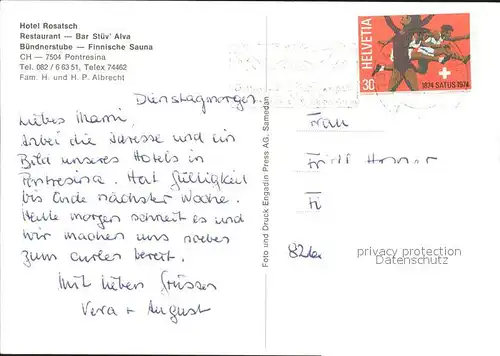 Hotel Rosatsch
Restaurant — Bar Stüv' Alva
Bündnerstube — Finnische Sauna
CH — 7504 Pontresina
Tel. 082 / 6 63 51, Telex 74462
Fam. H. und H. P. Albrecht
HELVETIA
30
1874 SATUS 1974
Dienstagmorgen.
Liebes Mami,
Anbei die Adresse und ein
Bild unseres Hotels in
Pontresina. Hat Gültigkeit
bis Ende nächster Woche.
Heute morgen schneit es und
wir machen uns soeben
zum curlen bereit.
Mit lieben Grüssen
Vera + August
Foto und Druck Engadin Press AG, Samedan
Frau
privacy protection
Datenschutz